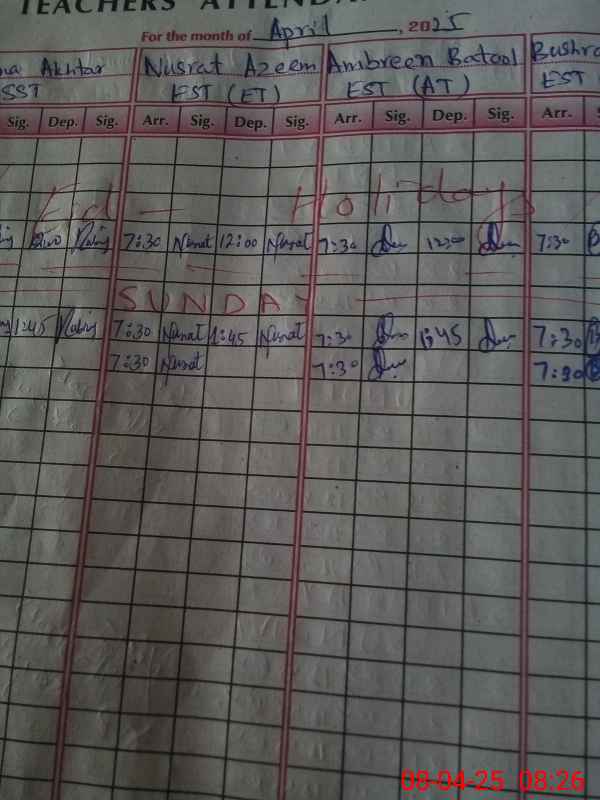 TEACHERS ATTENDA
For the month of April, 2025
na Akhtar Nusrat Azeem Ambreen Batool Bushra
SST EST (ET) EST (AT) EST
Sig. Dep. Sig. Arr. Sig. Dep. Sig. Arr. Sig. Dep. Sig. Arr. S
Eid - Holidays
7:30 Nusrat 12:00 Nusrat 7:30 12:00 7:30 B
SUNDAY
1:45 7:30 Nusrat 1:45 Nusrat 7:30 1:45 7:30 B
7:30 Nusrat 7:30 7:30 B
08-04-25 08:26